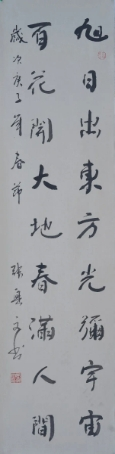 旭日出東方光彌宇宙
百花開大地春滿人間
歲次庚子年春節